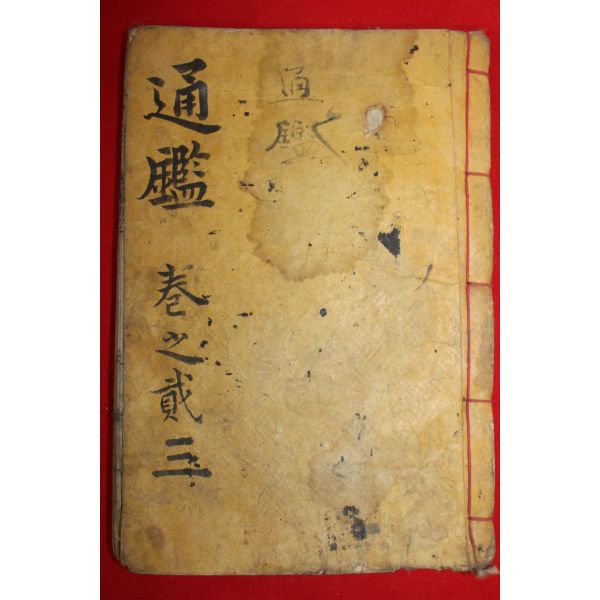 通鑑 卷之貳三
通鑑